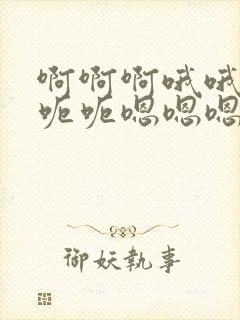 啊啊啊哦哦
呃呃嗯嗯嗯
御妖執事